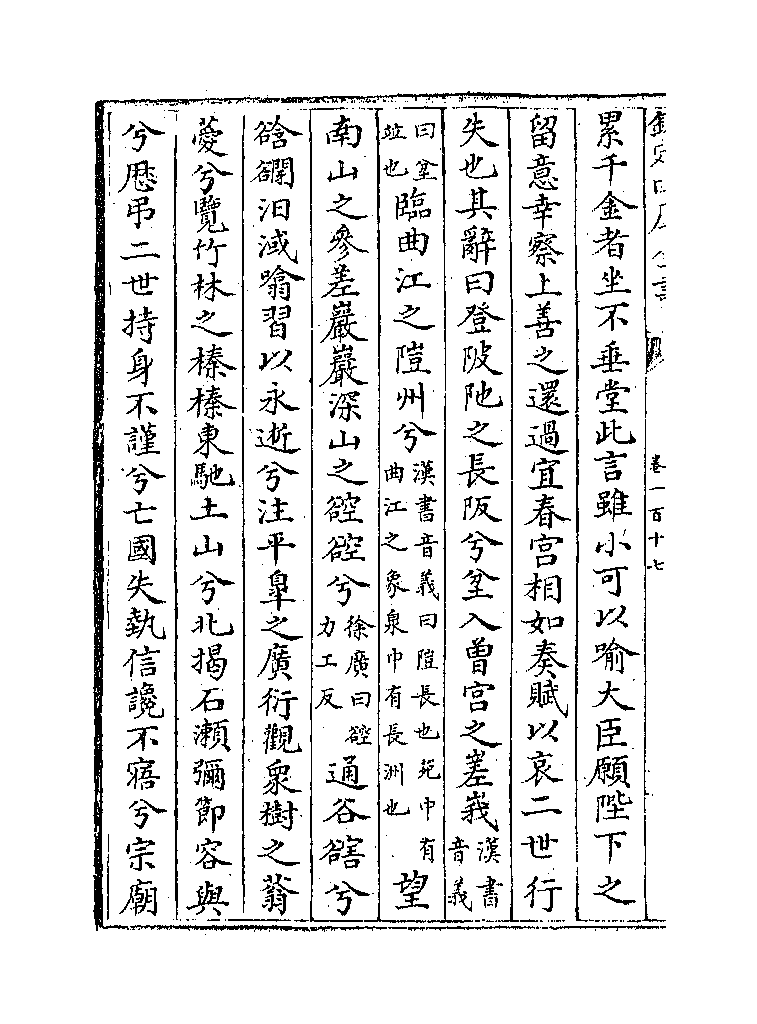 欽定四庫全書 卷一百十七
累千金者坐不垂堂此言雖小可以喻大臣願陛下之
留意幸察上善之還過宜春宫相如奏賦以哀二世行
失也其辭曰登陂阤之長阪兮坌入曽宫之嵳峩漢書音義
曰坌竝也臨曲江之隑州兮漢書音義曰隑長也苑中有曲江之象泉中有長洲也望
南山之參差巖巖深山之谾谾兮徐廣曰谾力工反通谷豁兮
谽汩淢噏習以永逝兮注平臯之廣衍觀衆樹之蓊
薆兮覽竹林之榛榛東馳土山兮北揭石瀨彌節容與
兮歴弔二世持身不謹兮亡國失執信讒不寤兮宗廟